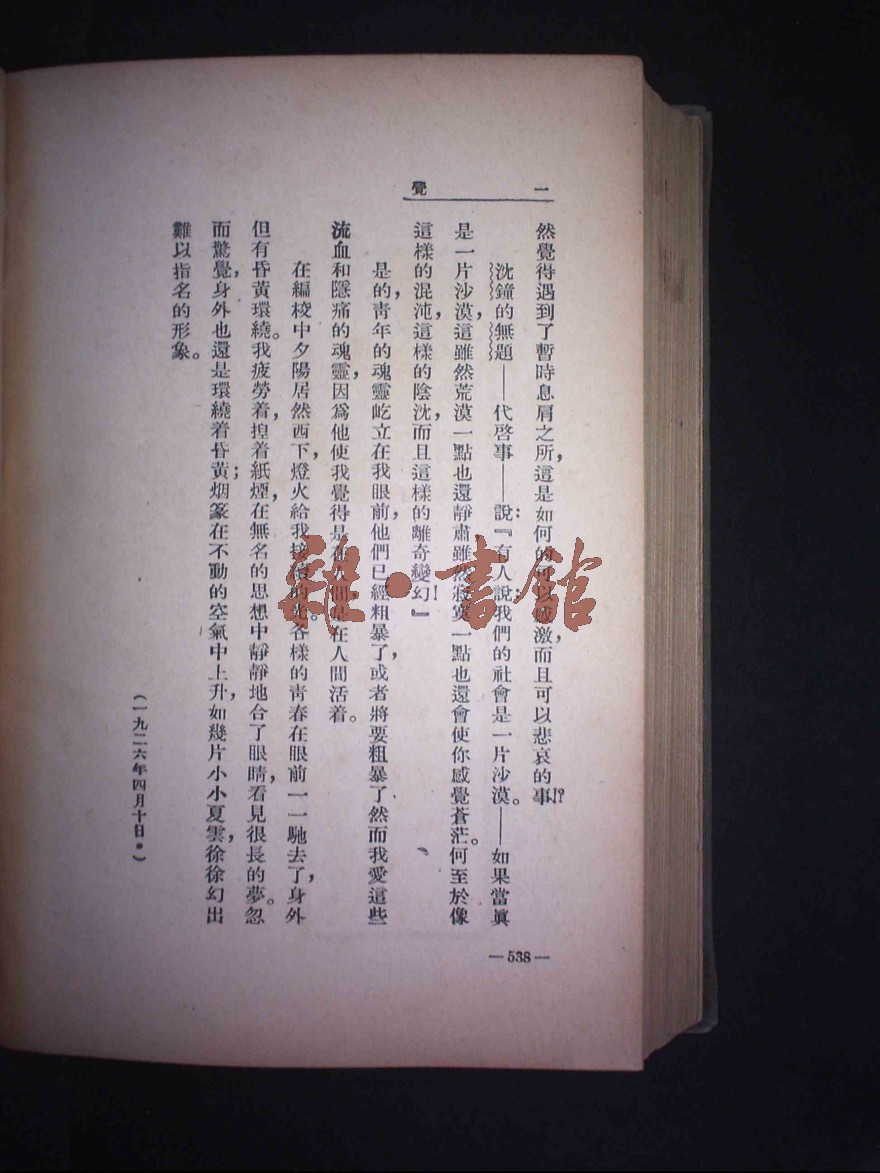 一覺
然覺得遇到了暫時息肩之所，這是如何的可以感激而且可以悲哀的事!?
沈鐘的無題——代啓事——說：『有人說我們的社會是一片沙漠。——如果當眞
是一片沙漠，這雖然荒漠一點也還靜肅雖然寂寞一點也還會使你感覺蒼茫。何至於像
這樣的混沌，這樣的陰沈，而且這樣的離奇變幻！』
是的，靑年的魂靈屹立在我眼前，他們已經粗暴了，或者將要粗暴了然而我愛這些
流血和隱痛的魂靈，因爲他使我覺得是在人間，是在人間活着。
在編校中夕陽居然西下，燈火給我接續的光。各樣的靑春在眼前一一馳去了，身外
但有昏黃環繞。我疲勞着，揑着紙煙，在無名的思想中靜靜地合了眼睛，看見很長的夢。忽
而驚覺，身外也還是環繞着昏黃；烟篆在不動的空氣中上升，如幾片小小夏雲，徐徐幻出
難以指名的形象。
（一九二六年四月十日。）
—538—
雜·書館